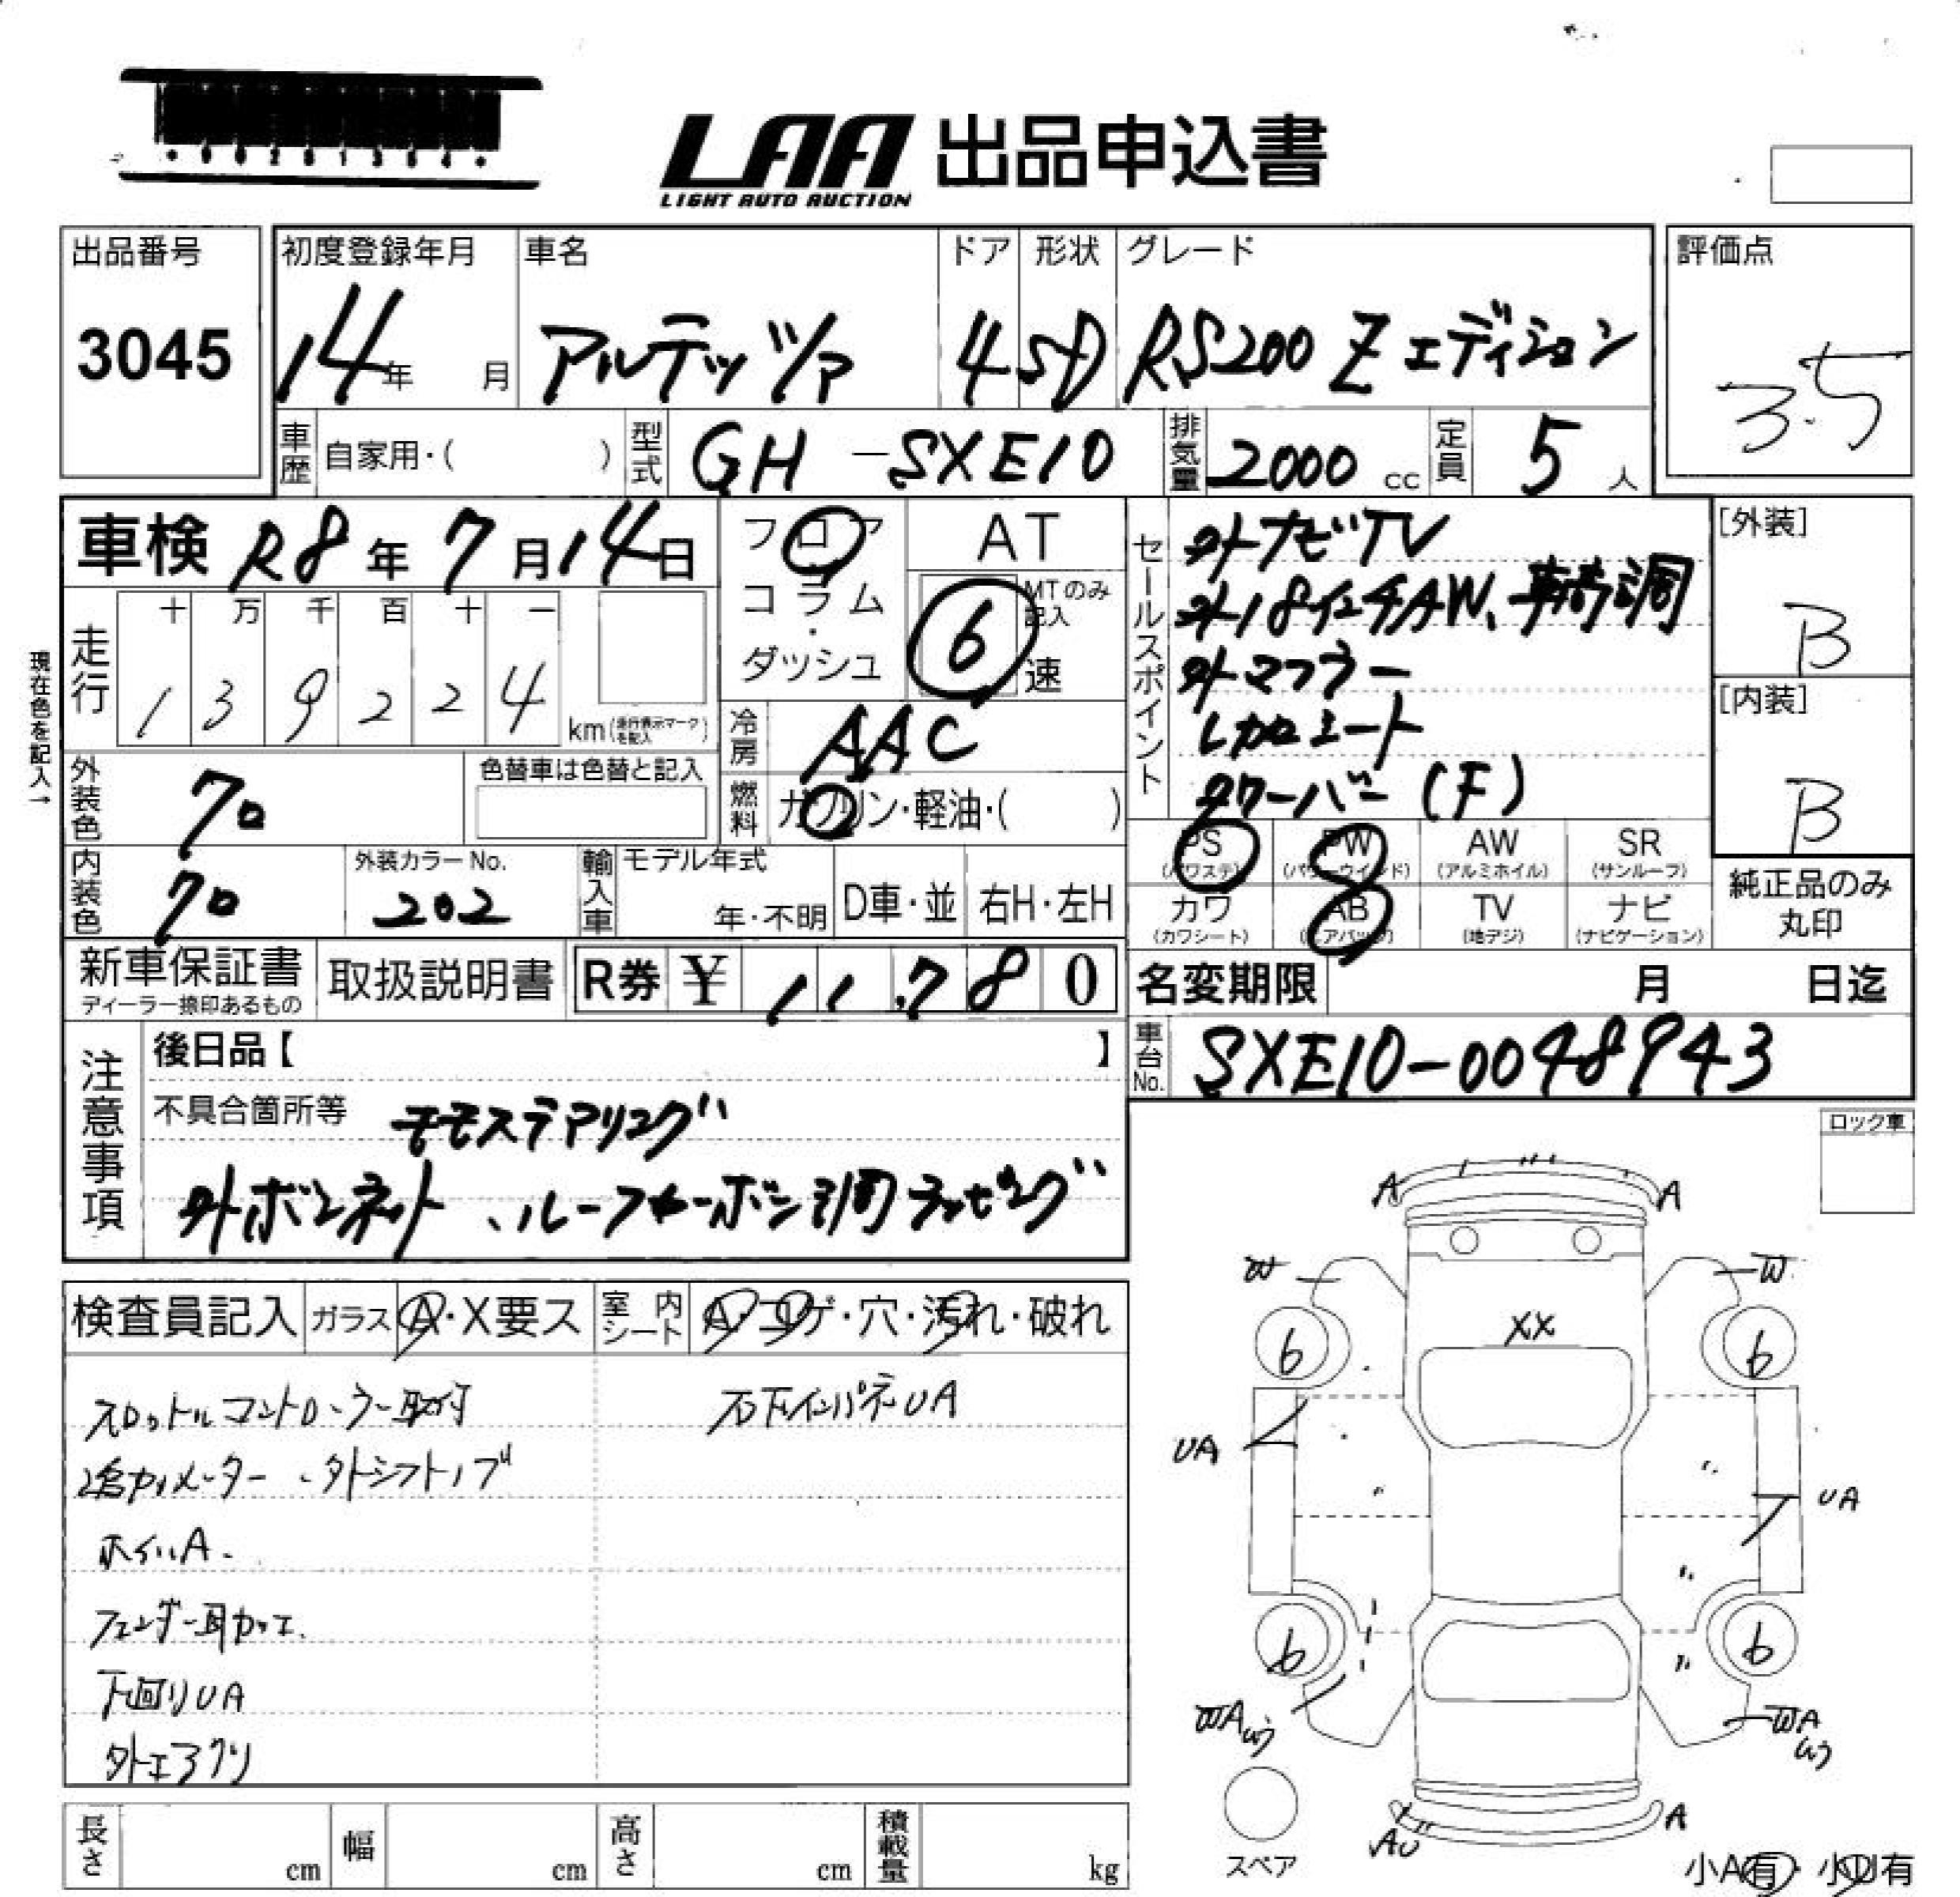 LAA 出品申込書
LIGHT AUTO AUCTION
出品番号
3045
初度登録年月
14年 月
車名
アルテッツァ
ドア
4
形状
SD
グレード
RS200 Zエディション
評価点
3.5
車歴 自家用・( )
型式 GH-SXE10
排気量 2000 cc
定員 5 人
車検 R8年7月14日
フロア
コラム
・
ダッシュ
AT
MTのみ記入
6速
走行
十 万 千 百 十 一
1 3 9 2 2 4
km(走行表示マークを記入)
現在色を記入→
冷房 AAC
燃料 ガソリン・軽油・( )
外装色 クロ
色替車は色替と記入
内装色 クロ
外装カラーNo.
202
輸入車
モデル年式
年・不明
D車・並
右H・左H
セールスポイント
外ナビTV
外18インチAW、車高調
外マフラー
レカロシート
タワーバー(F)
[外装]
B
[内装]
B
PS (パワステ)
PW (パワーウインド)
AW (アルミホイル)
SR (サンルーフ)
カワ (カワシート)
AB (エアバッグ)
TV (地デジ)
ナビ (ナビゲーション)
純正品のみ
丸印
新車保証書
ディーラー捺印あるもの
取扱説明書
R券 ¥ 11,780
名変期限 月 日迄
車台No. SXE10-0048943
注意事項
後日品【 】
不具合箇所等 モモステアリング
外ボンネット、ルーフカーボン調ラッピング
ロック車
検査員記入
ガラス A・X要ス
室内シート A・コゲ・穴・汚れ・破れ
スロットルコントローラー取付
追加メーター、外シフトノブ
ホイルA.
フェンダー耳加工.
下回りUA
外エアクリ
右下インパネUA
A A
W W
XX
6 6
UA
UA
6 6
WA
WA
AU A
スペア
小A有・小U有
長さ cm
幅 cm
高さ cm
積載量 kg